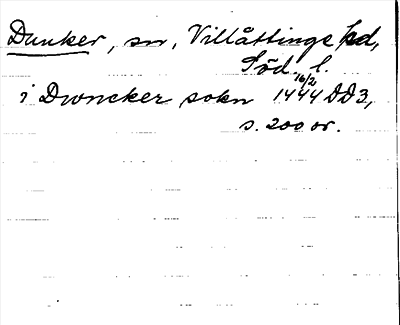 Dunker, sn, Villåttinge hd,
Söd. l.
i Dwncker sokn 16/2 1444 DD3,
s. 200 or.